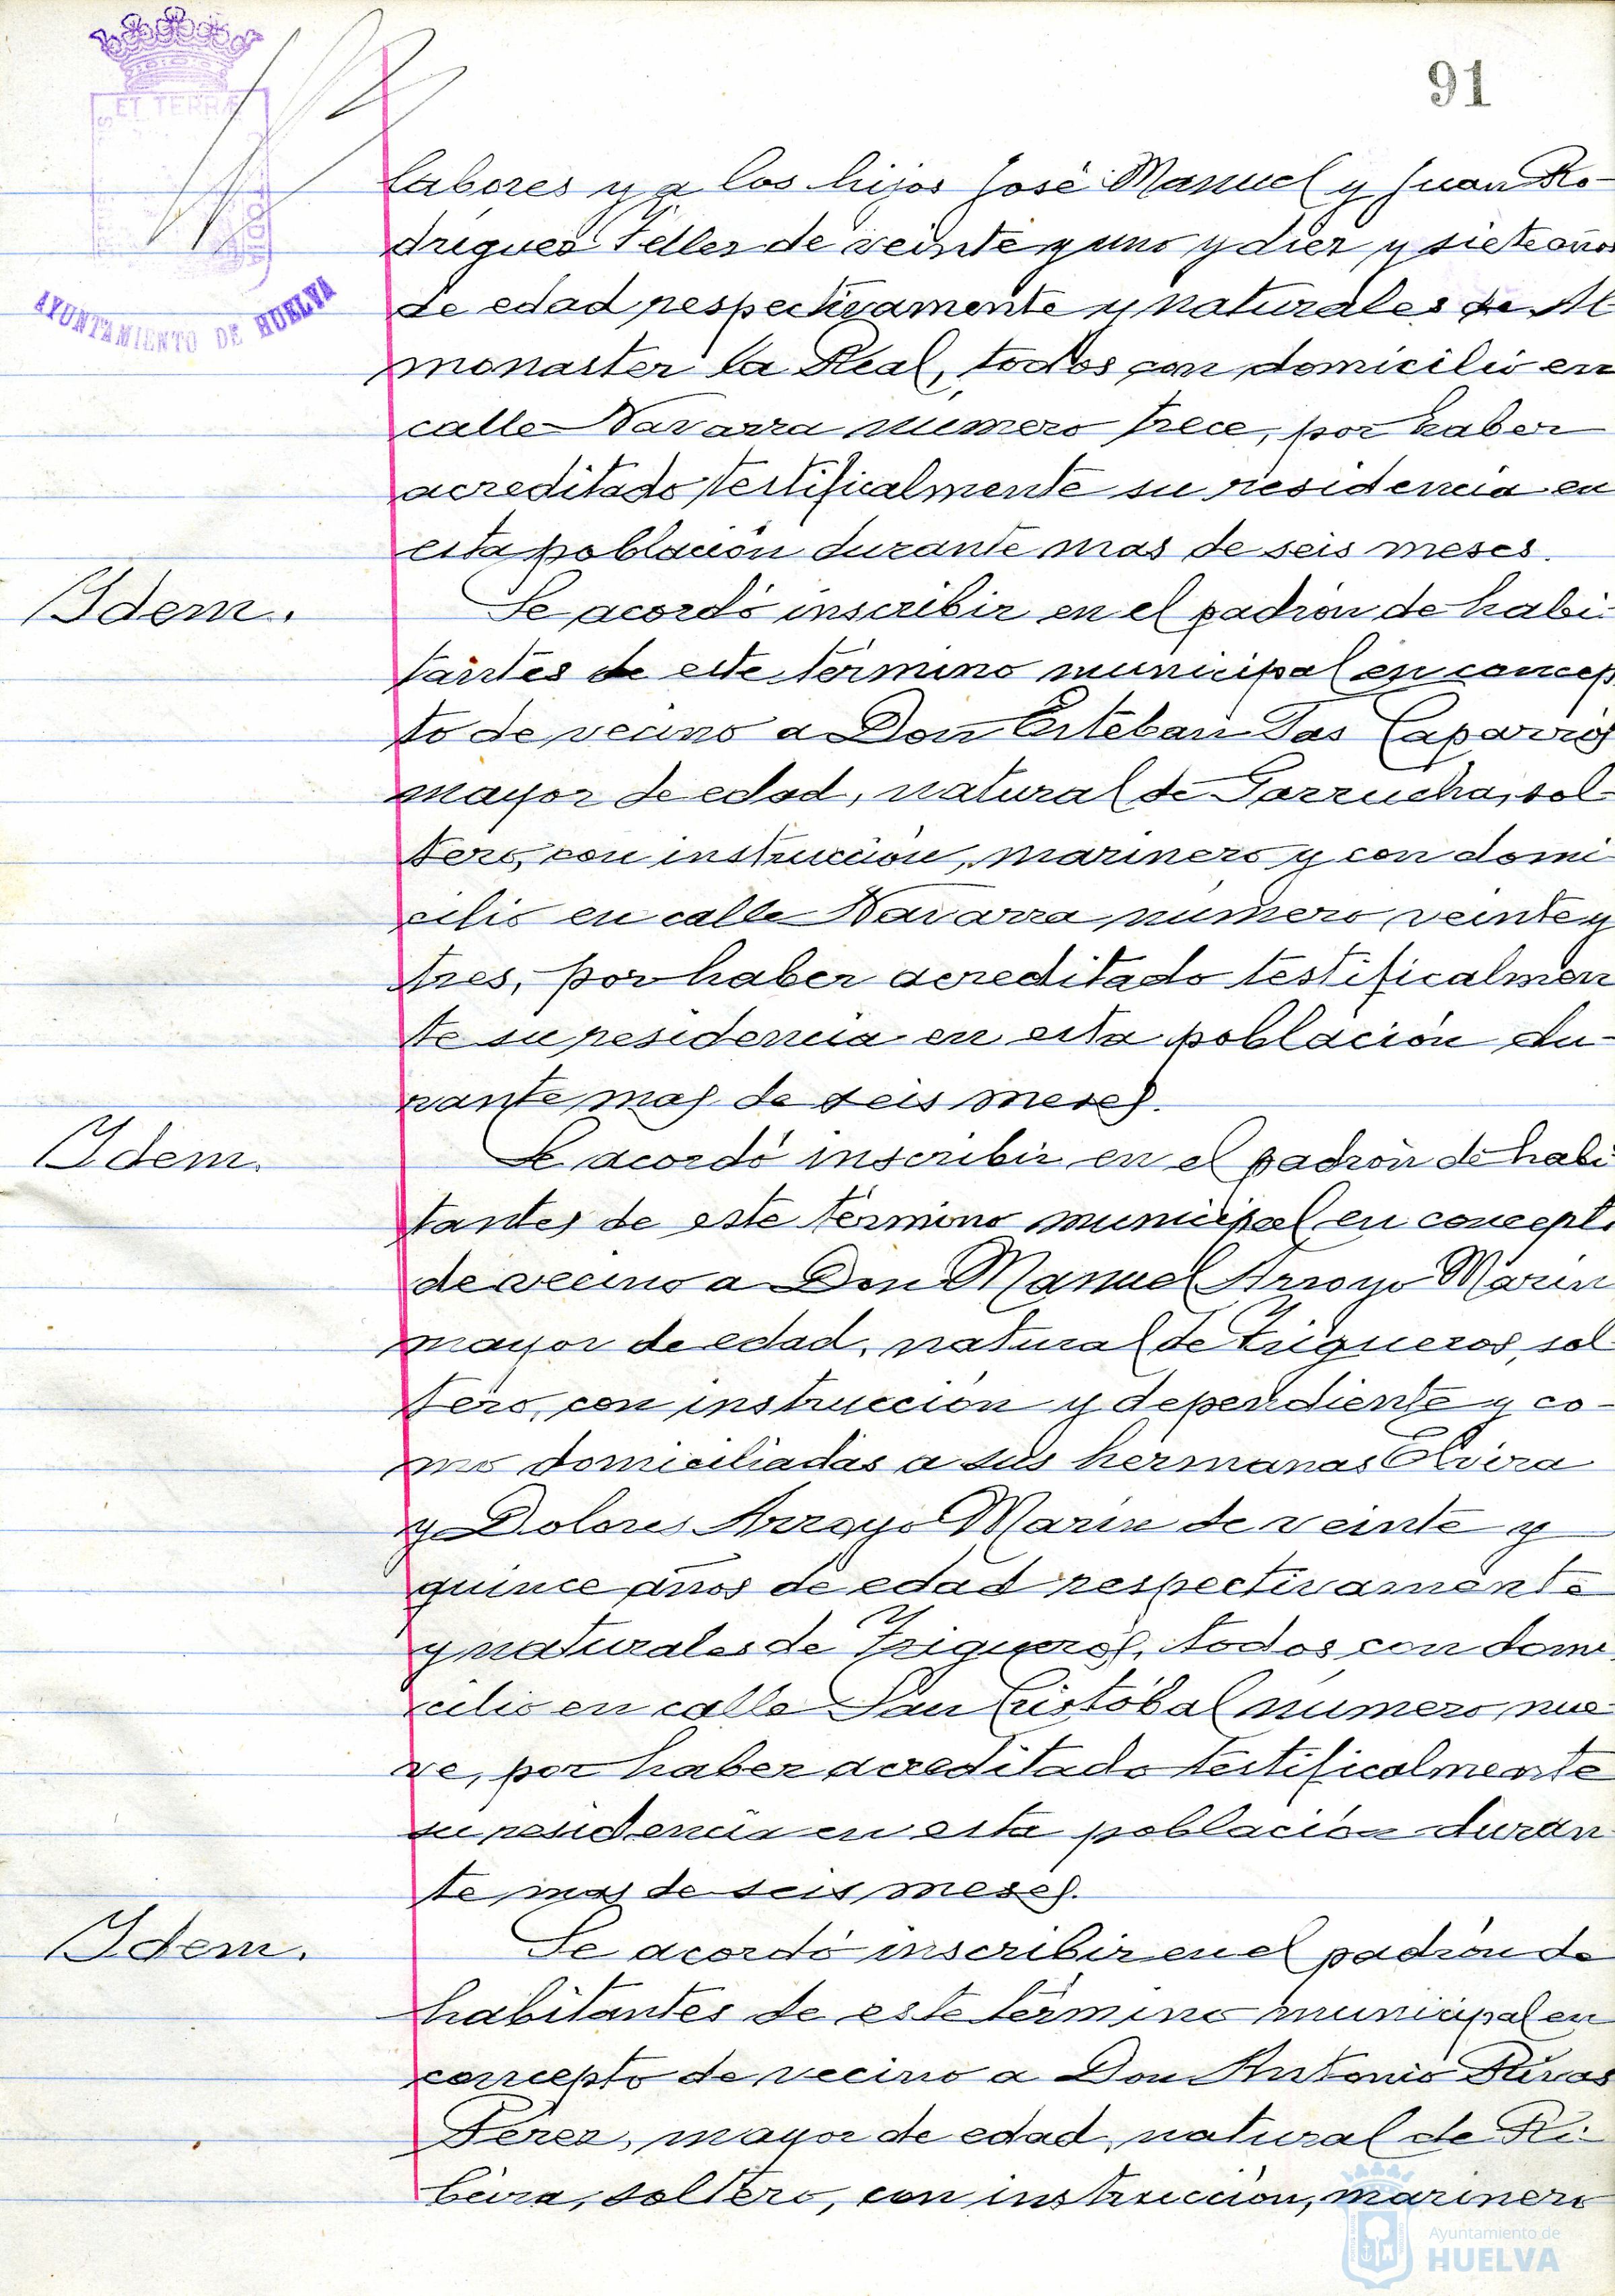 91
ET TERRÆ
CUSTODIA
AYUNTAMIENTO DE HUELVA
labores y a los hijos José Manuel y Juan Ro-
drigues Feller de veinte y uno y diez y siete años
de edad respectivamente y naturales de Al-
monaster la Real, todos con domicilio en
calle Navarra numero trece, por haber
acreditado testificalmente su residencia en
esta población durante mas de seis meses.
Idem.
Se acordó inscribir en el padrón de habi-
tantes de este término municipal en concep
to de vecino a Don Esteban Jas Caparrós
mayor de edad, natural de Garrucha, sol-
tero, con instrucción, marinero y con domi
cilio en calle Navarra número veinte y
tres, por haber acreditado testificalmen
te su residencia en esta población du-
rante mas de seis meses.
Idem.
Se acordó inscribir en el padrón de habi
tantes de este término municipal en concepto
de vecino a Don Manuel Arroyo Marin
mayor de edad, natural de Trigueros, sol-
tero, con instrucción y dependiente y co-
mo domiciliadas a sus hermanas Elvira
y Dolores Arroyo Marín de veinte y
quince años de edad respectivamente
y naturales de Trigueros, todos con domi
cilio en calle San Cristóbal número nue-
ve, por haber acreditado testificalmente
su residencia en esta población duran
te mas de seis meses.
Idem.
Se acordó inscribir en el padrón de
habitantes de este término municipal en
concepto de vecino a Don Antonio Rivas
Pérez, mayor de edad, natural de Ri-
beira, soltero, con instrucción, marinero
Ayuntamiento de
HUELVA